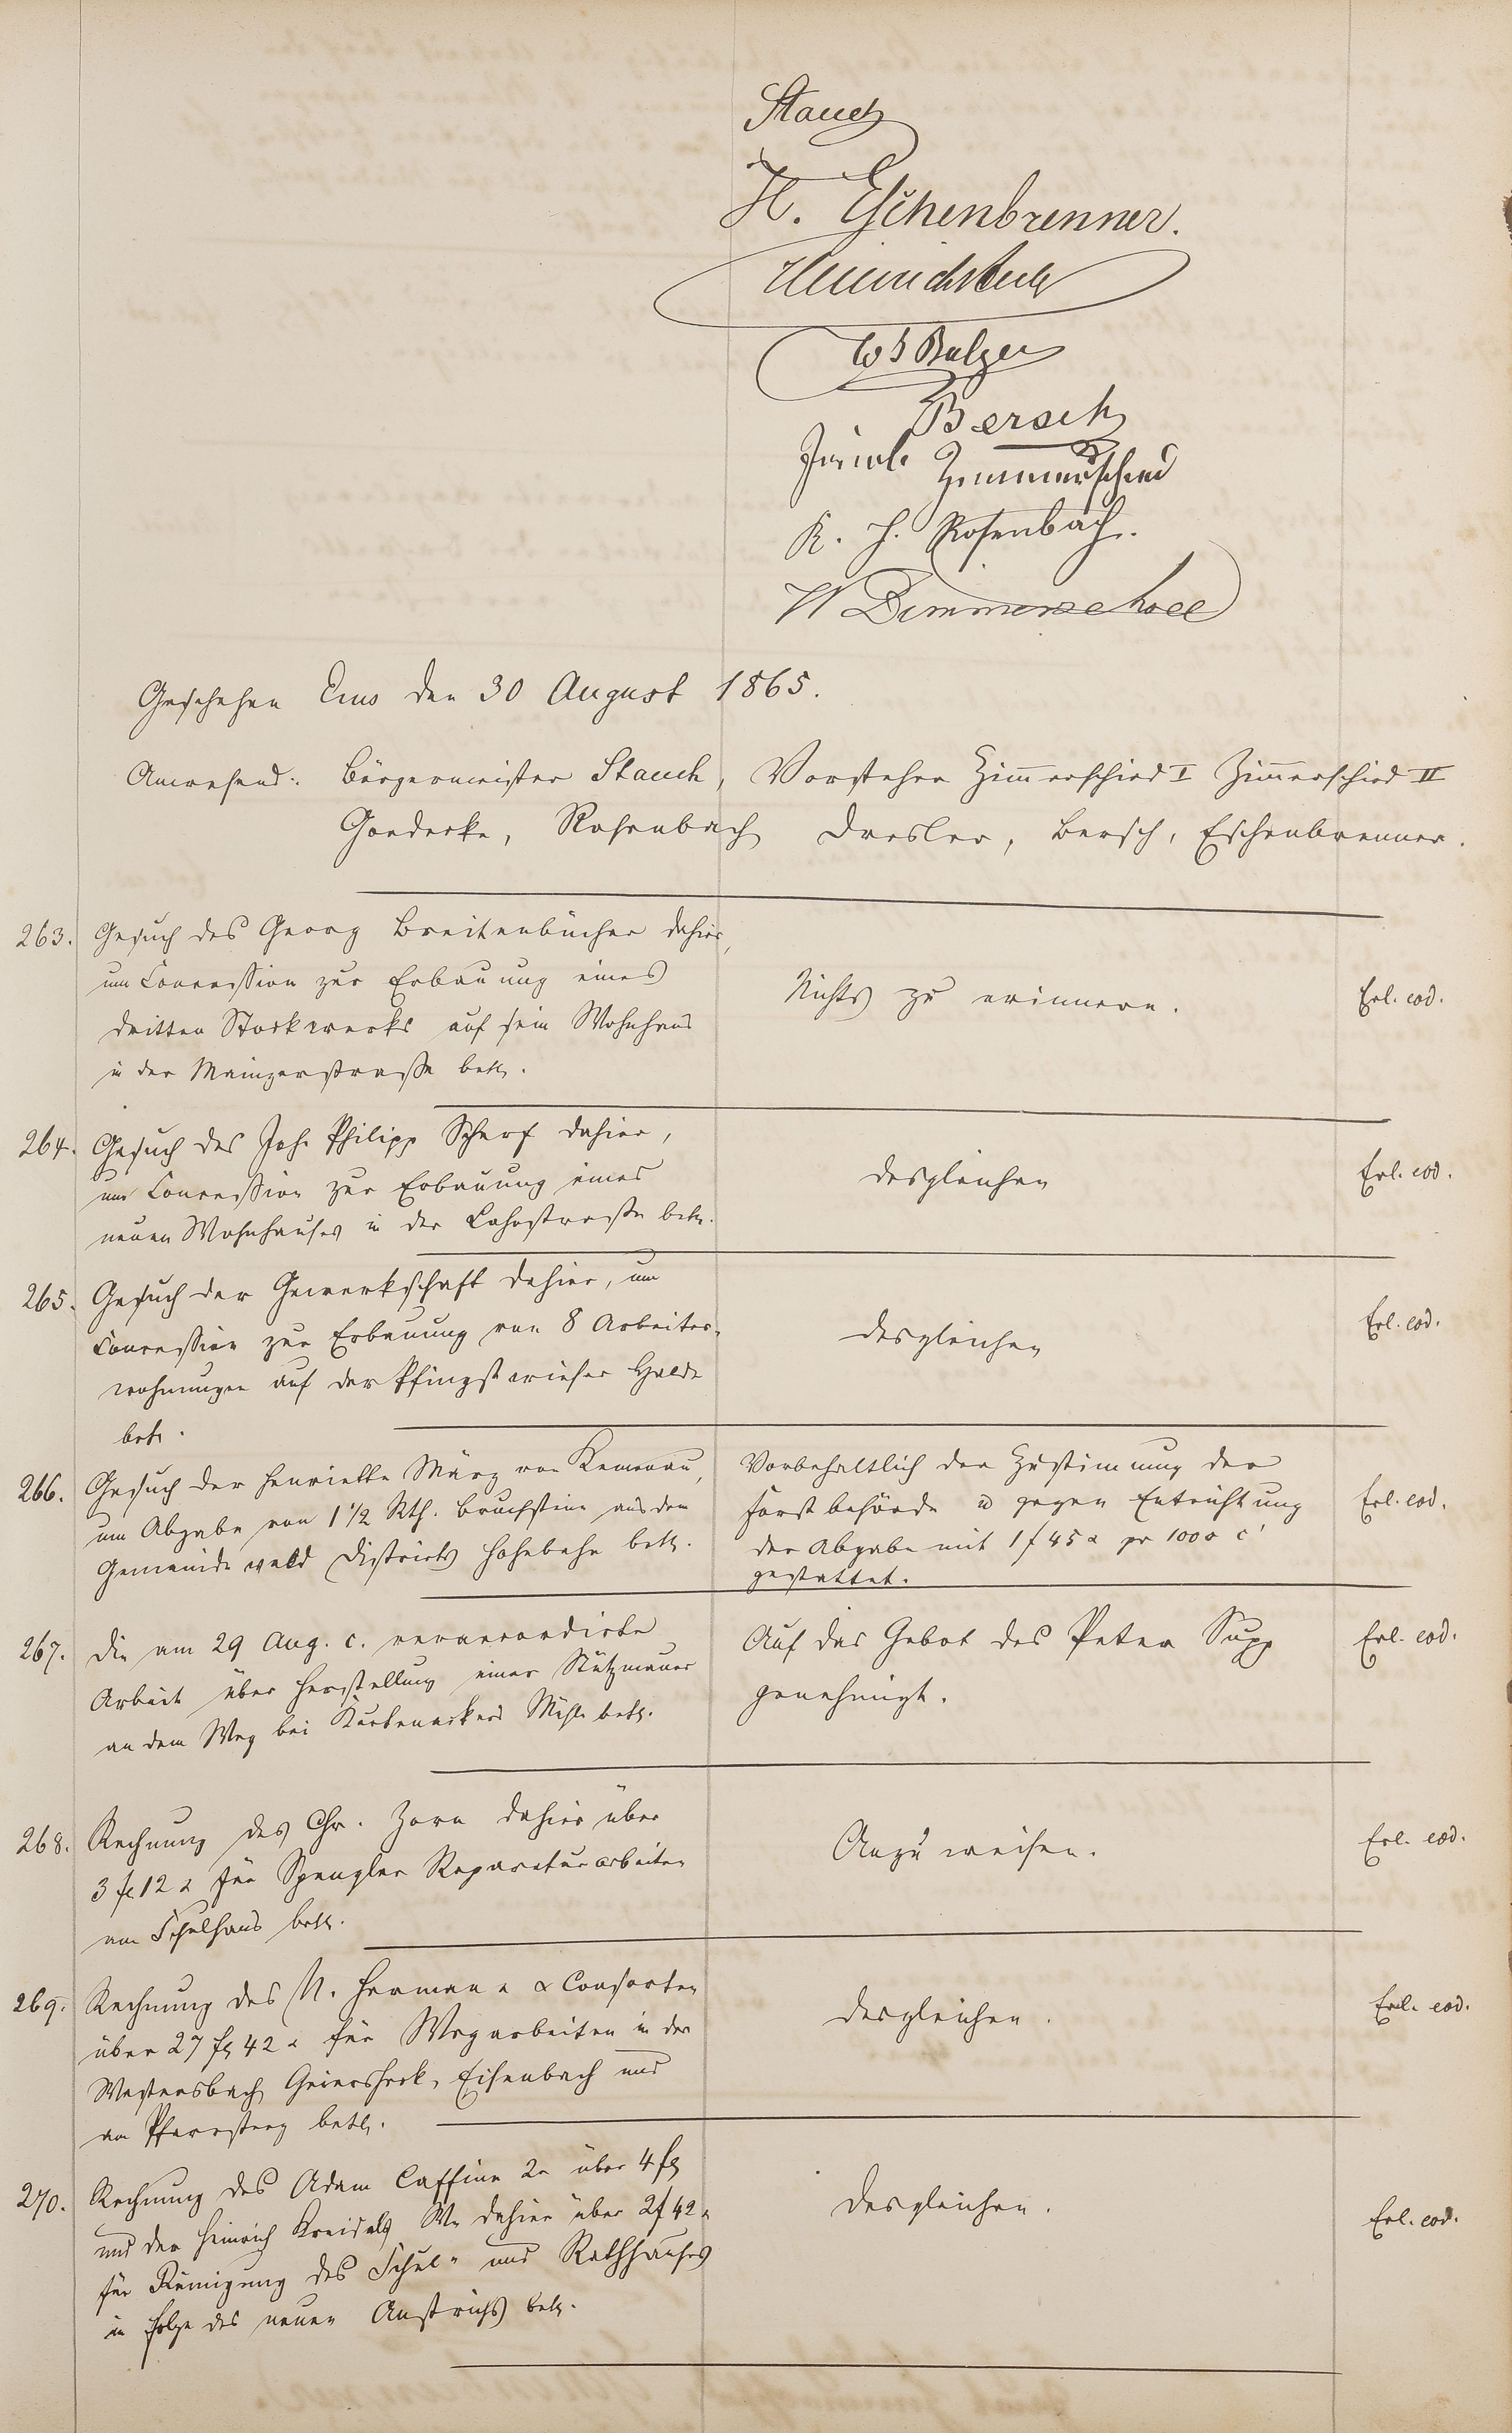 Stauch
H. Eschenbrenner.
W Balzer
Bersch
Jacob Zimmerschied
K. H. Rosenbach.
W Zimmerschied
Geschehen Ems den 30 August 1865.
Anwesend: Bürgermeister Stauch, Vorsteher Zimmerschied I Zimmerschied II
Goedecke, Rosenbach Dresler, Bersch, Eschenbrenner.
263. Gesuch des Georg Breitenbücher dahier,
um Concession zur Erbauung eines
dritten Stockwerks auf sein Wohnhaus
in der Mainzerstraße betr.
Nichts zu erinnern.
Erl. eod.
264. Gesuch des Joh. Philipp Scherf dahier,
um Concession zur Erbauung eines
neuen Wohnhauses in der Lahnstraße betr.
desgleichen
Erl. eod.
265. Gesuch der Gewerkschaft dahier, um
Concession zur Erbauung von 8 Arbeiter-
wohnungen auf der Pfingstwieser Halde
betr.
desgleichen
Erl. eod.
266. Gesuch der Henriette März von Kemenau,
um Abgabe von 1 1/2 Rth. Bruchstein aus dem
Gemeindewald Districts Hohebahn betr.
Vorbehaltlich der Zustimmung der
Forstbehörde u gegen Entrichtung
der Abgabe mit 1 f 45 x pr 1000 c'
gestattet.
Erl. eod.
267. Die am 29 Aug. c. veraccordirte
Arbeit über Herstellung einer Stützmauer
an dem Weg bei Mühle betr.
Auf das Gebot des Peter Supp
genehmigt.
Erl. eod.
268. Rechnung des Chr. Zorn dahier über
3 fl 12 x für Spengler Reparaturarbeiten
am Schulhaus betr.
Anzuweisen.
Erl. eod.
269. Rechnung des N. Hermann & Consorten
über 27 fl 42 x für Wegarbeiten in der
Westersbach, Geiersheck, Eisenbach und
am Pfarrsteeg betr.
desgleichen.
Erl. eod.
270. Rechnung des Adam Caffine 2r über 4 fl
und der Heinrich Kreidels We dahier über 2 f 42 x
für Reinigung des Schul- und Rathhauses
in Folge des neuen Anstrichs betr.
desgleichen.
Erl. eod.